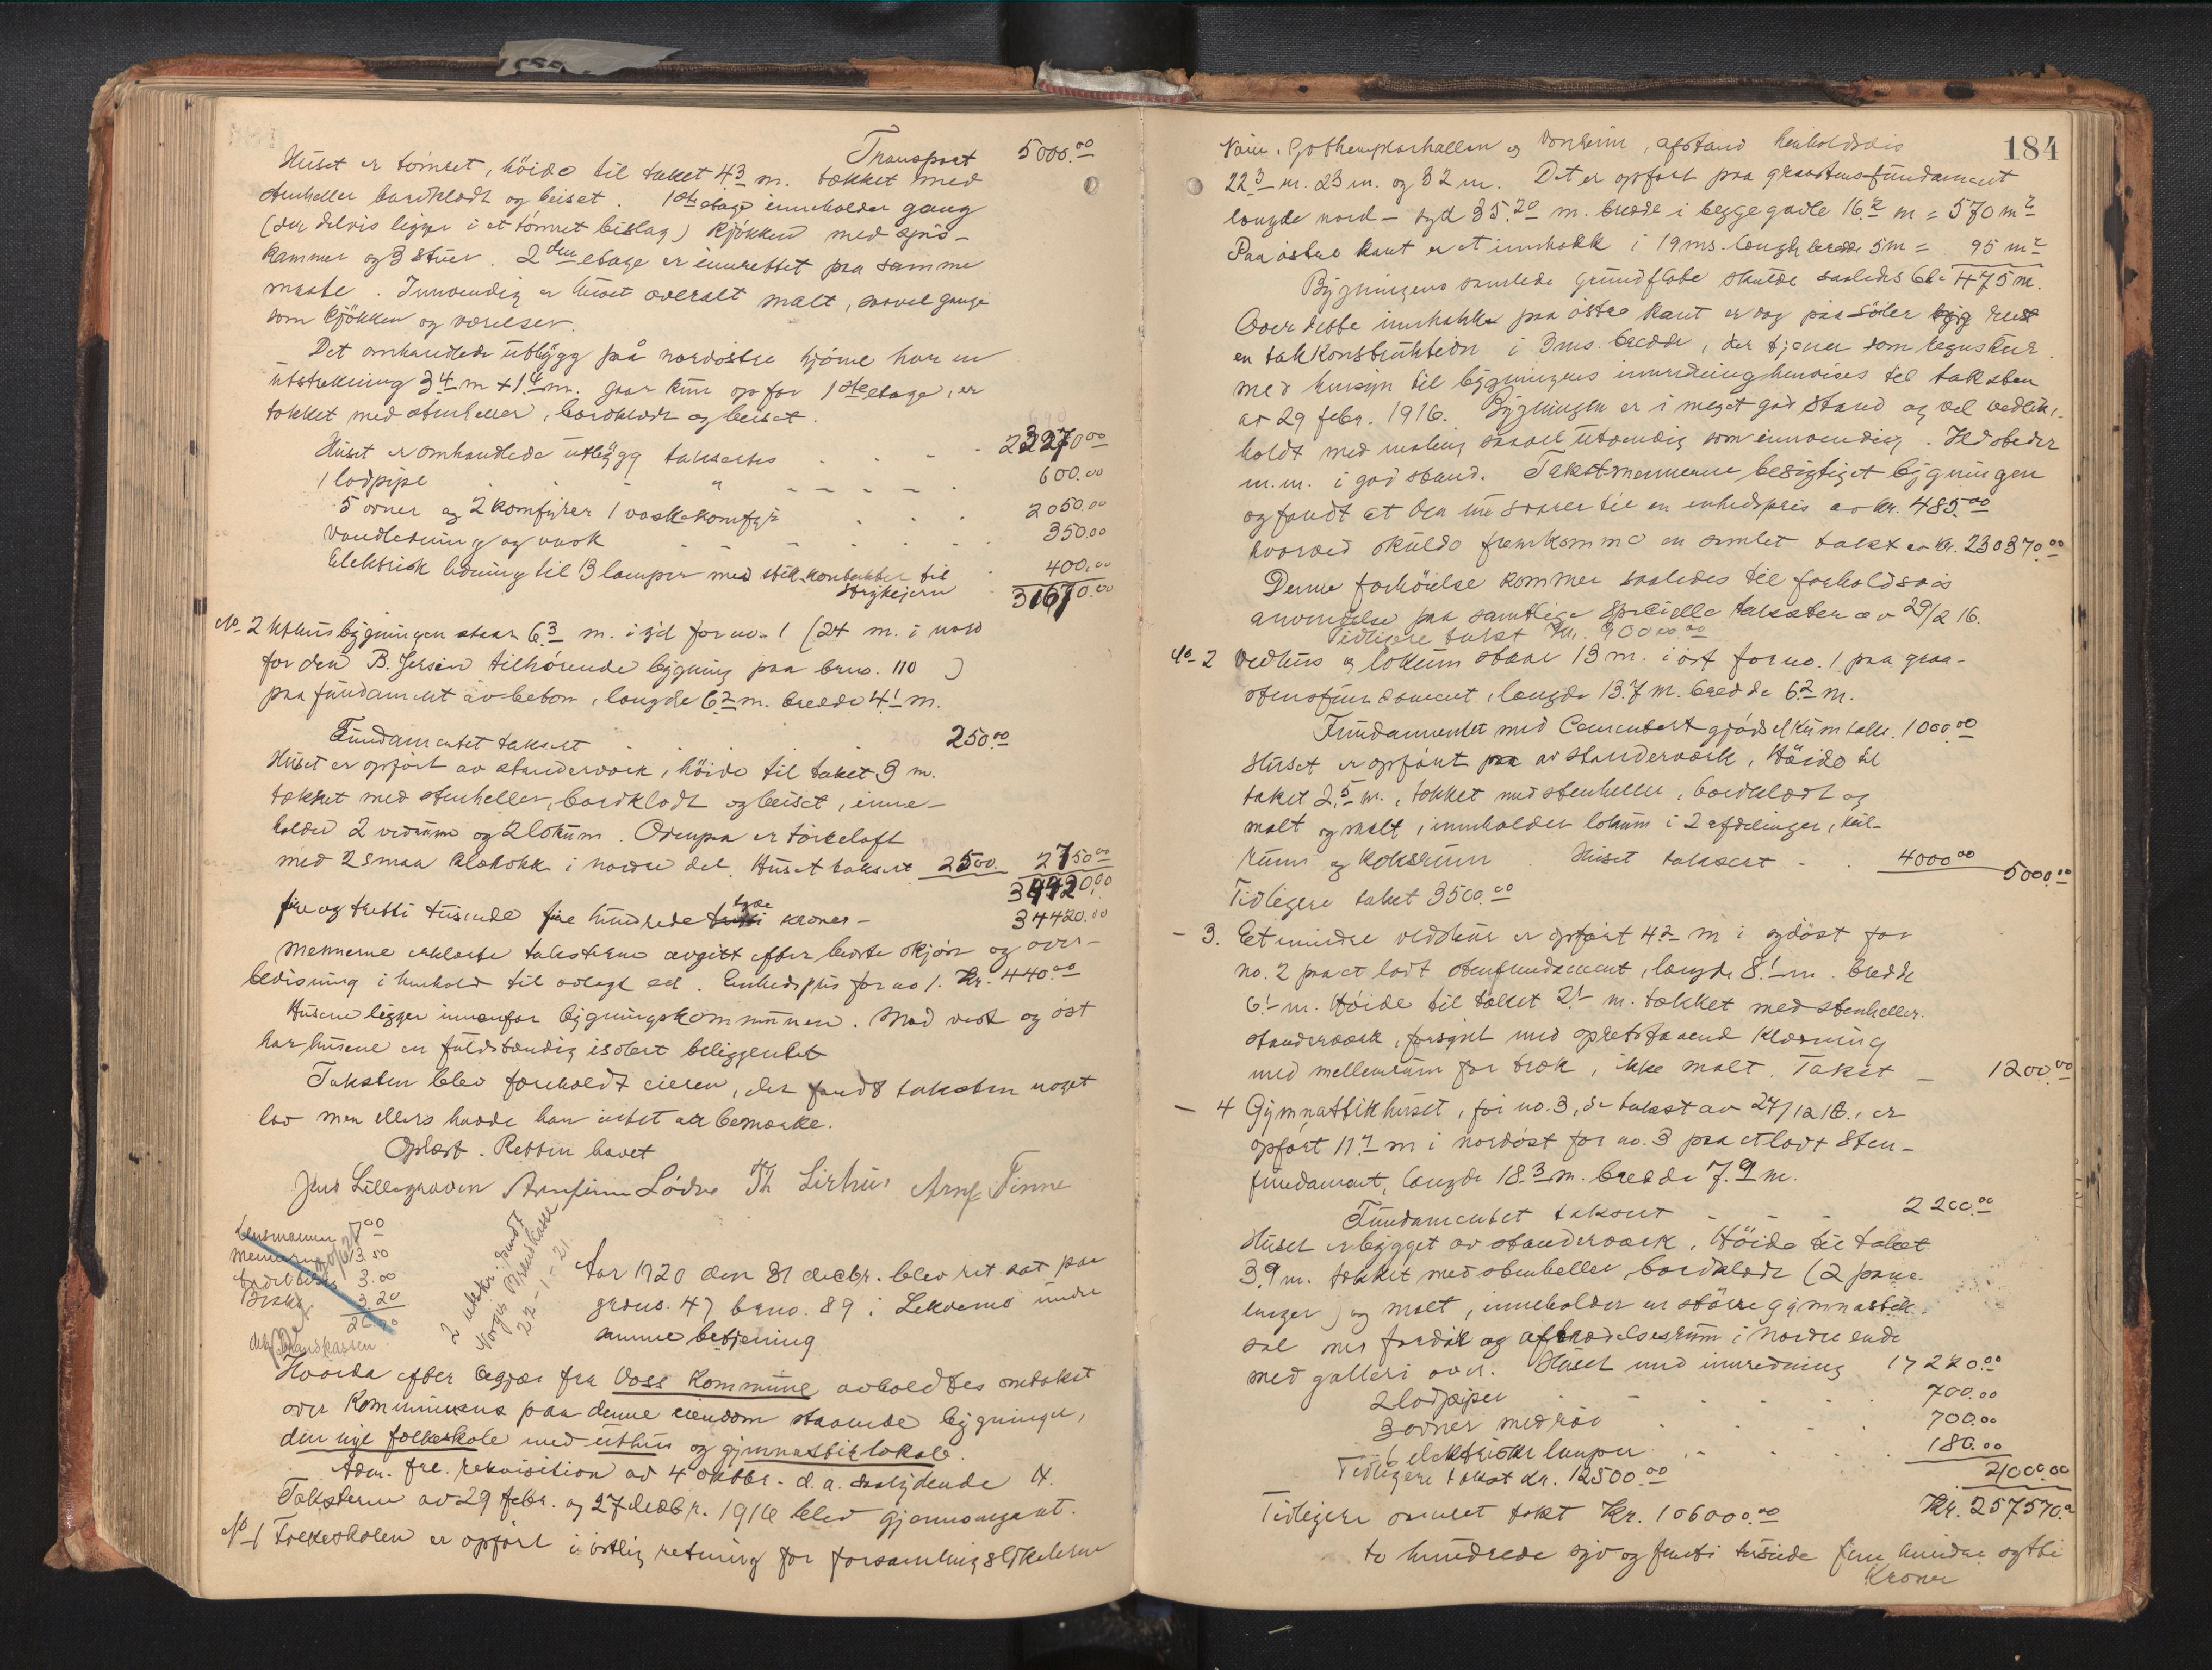 Transport 5000.00
Huset er tømret, høide til taket 4.3 m. tækket med
stenheller bordklædt og beiset. 1ste etage inneholder gang
(der delvis ligger i et tømret bislag) kjøkken med spis-
kammer og 3 stuer. 2den etage er innrettet paa samme
maate. Innvendig er huset overalt malt, saavel gange
som kjøkken og værelser.
Det omhandlede utbygg på nordøstre hjørne har en
utstrekning 3.4 m x 1.4 m. gaar kun op for 1ste etage, er
tækket med stenheller, bordklædt og beiset.
Huset er omhandlede utbygg takseres 23270.00
1 lodpipe " 600.00
5 ovner og 2 komfyrer 1 vaskekomfyr 2050.00
Vandledning og vask 350.00
Elektrisk ledning til 13 lamper med stikkontakter til
strykejern 400.00
31670.00
No 2 Uthusbygningen staar 6.3 m. i syd for no. 1 (24 m. i nord
for den B. Jersin tilhørende bygning paa brno. 110)
paa fundament av beton, længde 6.2 m. bredde 4.1 m.
Fundamentet taksert 250.00
Huset er opført av standerværk, høide til taket 3 m.
tækket med stenheller, bordklædt og beiset, inne-
holder 2 vedrum og 2 lokum. Ovenpaa er tørkeloft
med 2 smaa kløthokk i nordre del. Huset taksert 2500. 2750.00
34420.00
fire og tretti tusinde fire hundrede tyve kroner – 34420.00
Mennerne erklærte taksterne avgitt efter beste skjøn og over-
bevisning i henhold til avlagt ed. Enhedspris for no 1. Kr. 440.00
Husene ligger innenfor bygningskommunen. Mod vest og øst
har husene en fuldstændig isolert beliggenhet
Taksten blev foreholdt eieren, der fandt taksten noget
lav men ellers havde han intet at bemærke.
Oplæst. Retten hævet
Jens Lillegraven Arnfinn Lødve Th Lirhus Arnf. Finne
Lensmannen 7.00
Mennerne 13.50
3.00
3.20
26.70
Brandkassen
2 utskr. sendt
Norges Brandkasse
22-1-21
Aar 1920 den 31 decbr. blev ret sat paa
grdno. 47 brno. 89 i Lekvemo under
samme betjening
Hvorda efter begjær fra Voss Kommune avholdtes omtakst
over kommunens paa denne eiendom staaende bygninger,
den nye folkeskole med uthus og gymnastiklokale.
Adm. fre. rekvisition av 4 oktbr. d.a. saalydende
Taksterne av 29 febr. og 27 decbr. 1916 blev gjennomgaat.
No 1 Folkeskolen er opført i østlig retning for forsamlingslokalerne
184
Vær. Gothemplarhallen og Vonheim, afstand henholdsvis
22.3 m. 23 m. og 32 m. Det er opført paa graastensfundament
længde nord – syd 35.20 m. bredde i begge gavle 16.2 m = 570 m²
Paa østre kant er et innhakk i 19 ms. længde bredde 5 m = 95 m²
Bygningens samlede grundflate skulde saaledes bli 475 m.
Over dette innhakk paa østre kant er dog paa søiler
en takkonstruktion i 3 ms. bredde, der tjener som regnskur.
Med hensyn til bygningens innredning henvises til taksten
av 29 febr. 1916. Bygningen er i meget god stand og vel vedlike-
holdt med maling saavel utvendig som innvendig. Ildsteder
m.m. i god stand. Takstmennerne besigtiget bygningen
og fandt at den nu svarer til en enhedspris av kr. 485.00
hvorved skulde fremkomme en samlet takst av kr. 230370.00
Denne forhøielse kommer saaledes til forholdsvis
anvendelse paa samtlige specielle takster av 29/2 16.
Tidligere takst Kr. 90000.00
No 2 Vedhus og lokum staar 13 m. i øst for no. 1 paa graa-
stensfundament, længde 13.7 m. bredde 6.2 m.
Fundamentet med Cementert gjødselkum takse. 1000.00
Huset er opført av standerværk, Høide til
taket 2.5 m., tækket med stenheller, bordklædt og
malt og malt, inneholder lokum i 2 afdelinger, kul-
rum og koksrum. Huset taksert 4000.00 5000.00
Tidligere takst 3500.00
– 3. Et mindre vedskur er opført 4.2 m i sydøst for
no. 2 paa et lødt stenfundament, længde 8.1 m. bredde
6.1 m. Høide til taket 2.1 m. tækket med stenheller.
standerværk, forsynt med opretstaaende klædning
med mellemrum for træk, ikke malt. Takst – 1200.00
– 4 Gymnastikhuset, før no. 3, se takst av 27/12 16., er
opført 11.4 m i nordøst for no. 3 paa et lødt sten-
fundament, længde 18.3 m. bredde 7.9 m.
Fundamentet taksert 2200.00
Huset er bygget av standerværk, Høide til taket
3.9 m. tækket med stenheller bordklædt (2 pane-
linger) og malt, inneholder en større gymnastik-
sal med fordør og afklædelsesrum i nordre ende
med galleri over. Huset med innredning 17220.00
2 lodpiper 700.00
3 ovner med rør 700.00
6 elektriske lamper 180.00
Tidligere takst kr. 12500.00 21000.00
Tidligere samlet takst Kr. 106000.00 Kr. 257570.00
to hundrede syv og femti tusinde fem hundre sytti
Kroner